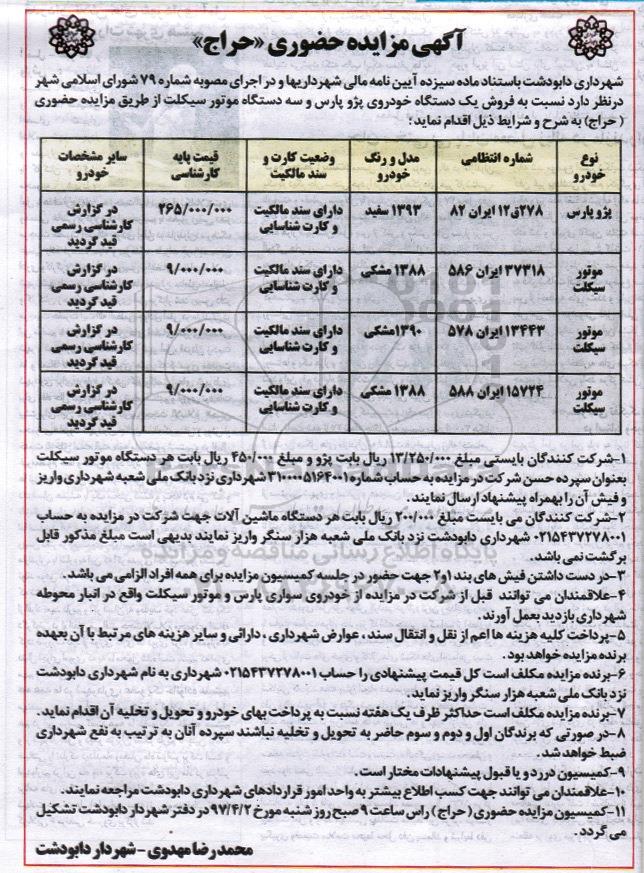 آگهی مزایده حضوری «حراج»
شهرداری دابودشت باستناد ماده سیزده آیین نامه مالی شهرداریها و در اجرای مصوبه شماره ۷۹ شورای اسلامی شهر
درنظر دارد نسبت به فروش یک دستگاه خودروی پژو پارس و سه دستگاه موتور سیکلت از طریق مزایده حضوری
( حراج) به شرح و شرایط ذیل اقدام نماید:
نوع خودرو | شماره انتظامی | مدل و رنگ خودرو | وضعیت کارت و سند مالکیت | قیمت پایه کارشناسی | سایر مشخصات خودرو
پژو پارس | ۲۷۸ق۱۲ ایران ۸۲ | ۱۳۹۳ سفید | دارای سند مالکیت و کارت شناسایی | ۲۶۵/۰۰۰/۰۰۰ | در گزارش کارشناسی رسمی قید گردید
موتور سیکلت | ۳۷۳۱۸ ایران ۵۸۶ | ۱۳۸۸ مشکی | دارای سند مالکیت و کارت شناسایی | ۹/۰۰۰/۰۰۰ | در گزارش کارشناسی رسمی قید گردید
موتور سیکلت | ۱۳۴۴۳ ایران ۵۷۸ | ۱۳۹۰مشکی | دارای سند مالکیت و کارت شناسایی | ۹/۰۰۰/۰۰۰ | در گزارش کارشناسی رسمی قید گردید
موتور سیکلت | ۱۵۷۲۴ ایران ۵۸۸ | ۱۳۸۸ مشکی | دارای سند مالکیت و کارت شناسایی | ۹/۰۰۰/۰۰۰ | در گزارش کارشناسی رسمی قید گردید
۱-شرکت کنندگان بایستی مبلغ ۱۳/۲۵۰/۰۰۰ ریال بابت پژو و مبلغ ۴۵۰/۰۰۰ ریال بابت هر دستگاه موتور سیکلت
بعنوان سپرده حسن شرکت در مزایده به حساب شماره ۳۱۰۰۰۰۵۱۶۴۰۰۱ شهرداری نزد بانک ملی شعبه شهرداری واریز
و فیش آن را بهمراه پیشنهاد ارسال نمایند.
۲-شرکت کنندگان می بایست مبلغ ۲۰۰/۰۰۰ ریال بابت هر دستگاه ماشین آلات جهت شرکت در مزایده به حساب
۰۲۱۵۴۳۷۲۷۸۰۰۱ شهرداری دابودشت نزد بانک ملی شعبه هزار سنگر واریز نمایند بدیهی است مبلغ مذکور قابل
برگشت نمی باشد.
۳-در دست داشتن فیش های بند ۱و۲ جهت حضور در جلسه کمیسیون مزایده برای همه افراد الزامی می باشد.
۴-علاقمندان می توانند قبل از شرکت در مزایده از خودروی سواری پارس و موتور سیکلت واقع در انبار محوطه
شهرداری بازدید بعمل آورند.
۵-پرداخت کلیه هزینه ها اعم از نقل و انتقال سند، عوارض شهرداری، دارائی و سایر هزینه های مرتبط با آن بعهده
برنده مزایده خواهد بود.
۶-برنده مزایده مکلف است کل قیمت پیشنهادی را حساب ۰۲۱۵۴۳۷۲۷۸۰۰۱ شهرداری به نام شهرداری دابودشت
نزد بانک ملی شعبه هزار سنگر واریز نماید.
۷-برنده مزایده مکلف است حداکثر ظرف یک هفته نسبت به پرداخت بهای خودرو و تحویل و تخلیه آن اقدام نماید.
۸-در صورتی که برندگان اول و دوم و سوم حاضر به تحویل و تخلیه نباشند سپرده آنان به ترتیب به نفع شهرداری
ضبط خواهد شد.
۹-کمیسیون در رد و یا قبول پیشنهادات مختار است.
۱۰-علاقمندان می توانند جهت کسب اطلاع بیشتر به واحد امور قراردادهای شهرداری دابودشت مراجعه نمایند.
۱۱-کمیسیون مزایده حضوری ( حراج ) راس ساعت ۹ صبح روز شنبه مورخ ۹۷/۴/۲ در دفتر شهردار دابودشت تشکیل
می گردد.
محمد رضا مهدوی - شهردار دابودشت